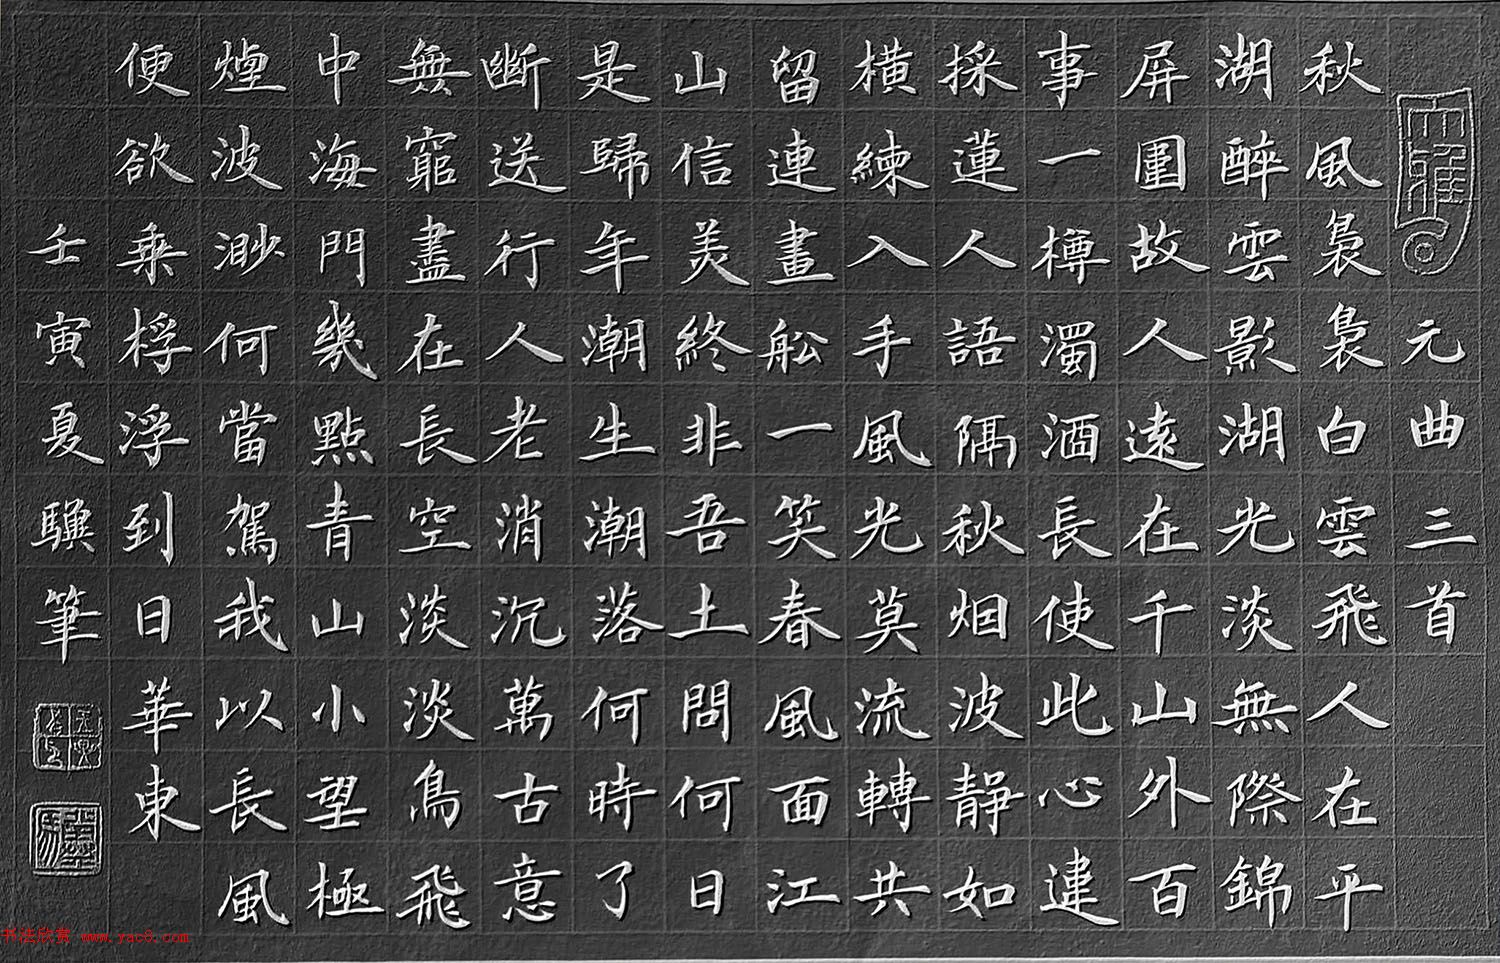 大雅
元曲三首
秋風裊裊白雲飛人在平
湖醉雲影湖光淡無際錦
屏圍故人遠在千山外百
事一樽濁酒長使此心違
採蓮人語隔秋烟波靜如
橫練入手風光莫流轉共
留連畫舩一笑春風面江
山信美終非吾土問何日
是歸年潮生潮落何時了
斷送行人老消沉萬古意
無窮盡在長空淡淡鳥飛
中海門幾點青山小望極
煙波渺何當駕我以長風
便欲乘桴浮到日華東
壬寅夏驥筆
书法欣赏 www.yac8.com